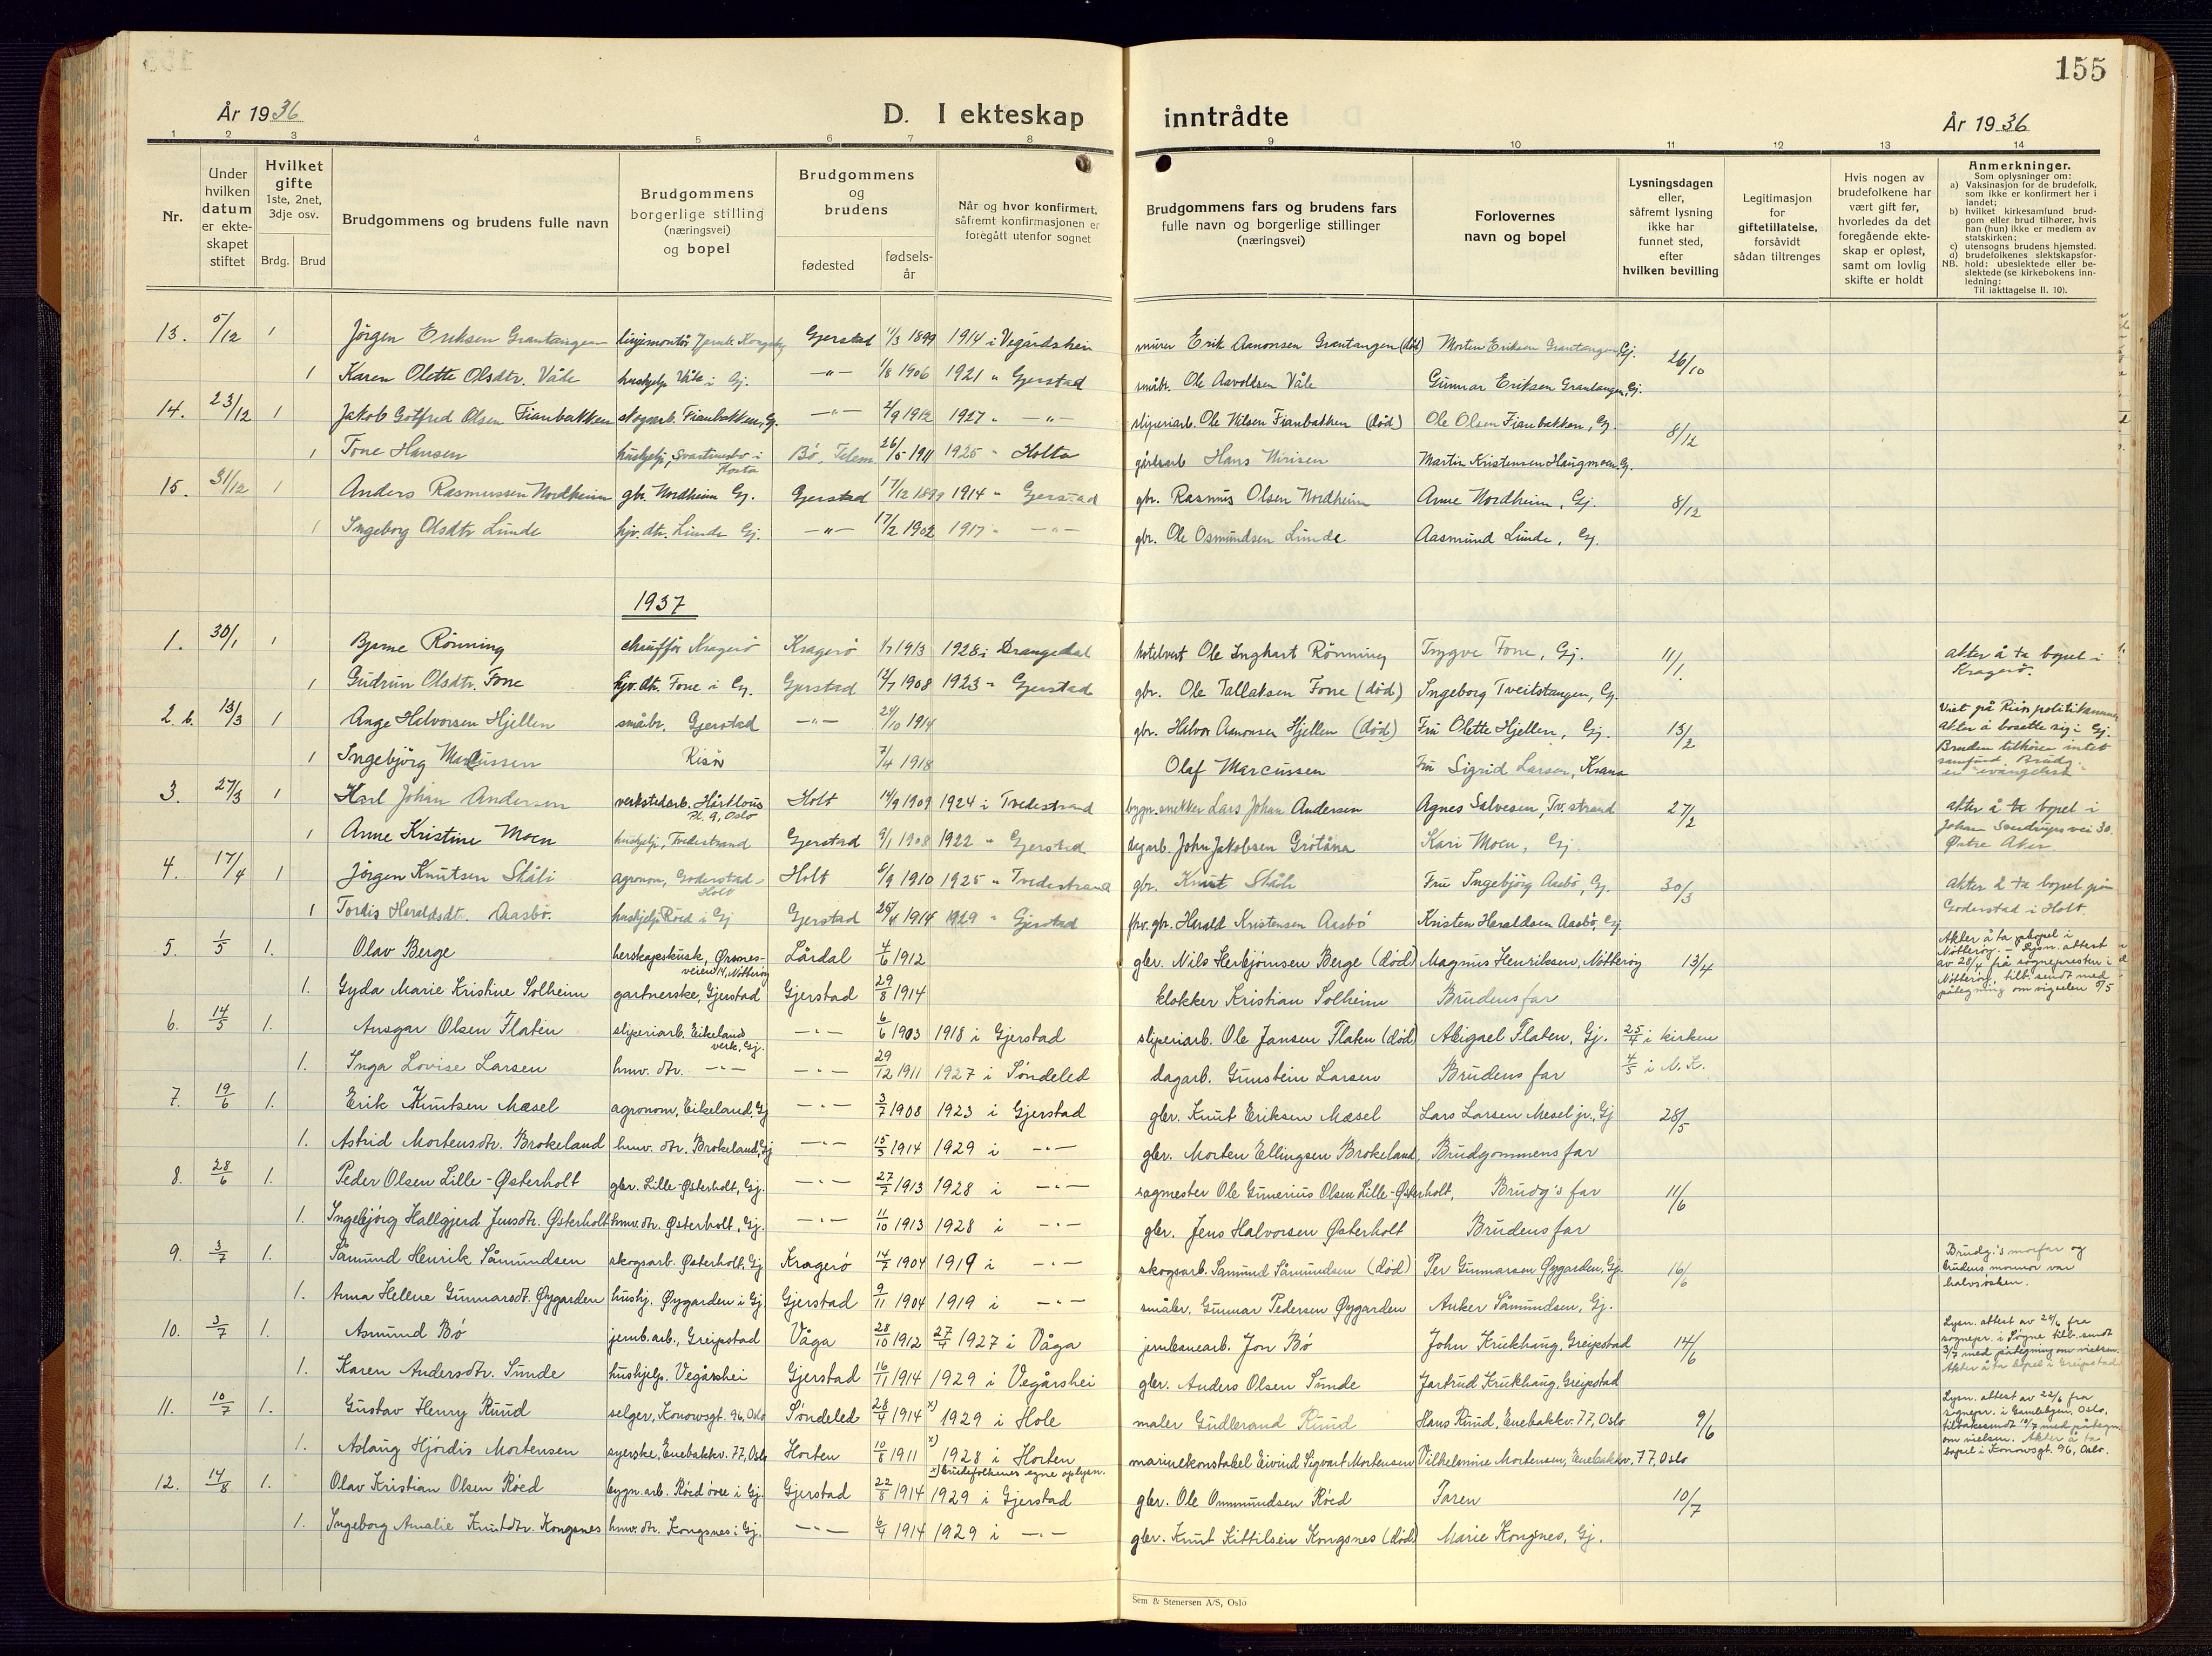 155
År 1936
D. I ekteskap inntrådte
År 1936
1 2 3 4 5 6 7 8 9 10 11 12 13 14
Nr.
Under hvilken datum er ekteskapet stiftet
Hvilket gifte 1ste, 2net, 3dje osv.
Brdg. Brud
Brudgommens og brudens fulle navn
Brudgommens borgerlige stilling (næringsvei) og bopel
Brudgommens og brudens
fødested
fødselsår
Når og hvor konfirmert, såfremt konfirmasjonen er foregått utenfor sognet
Brudgommens fars og brudens fars fulle navn og borgerlige stillinger (næringsvei)
Forlovernes navn og bopel
Lysningsdagen eller, såfremt lysning ikke har funnet sted, efter hvilken bevilling
Legitimasjon for giftetillatelse, forsåvidt sådan tiltrenges
Hvis nogen av brudefolkene har vært gift før, hvorledes da det foregående ekteskap er opløst, samt om lovlig skifte er holdt
Anmerkninger.
Som oplysninger om:
a) Vaksinasjon for de brudefolk, som ikke er konfirmert her i landet;
b) hvilket kirkesamfund brudgom eller brud tilhører, hvis han (hun) ikke er medlem av statskirken;
c) utensogns brudens hjemsted.
d) brudefolkenes slektskapsforhold: ubeslektede eller beslektede (se kirkebokens innledning:
NB.
Til iakttagelse II. 10).
13. 5/12 1 Jörgen Eriksen Grantangen linjemontör Gjerstad 11/3 1899 1914 i Vegårdshein murer Erik Aanonsen Grantangen (död) Morten Eriksen Grantangen, Gj. 26/10
1 Karen Olette Olsdtr. Våle hushjelp Våle i Gj. -"- 1/8 1906 1921 " Gjerstad småbr. Ole Aavoldsen Våle Gunnar Eriksen Grantangen, Gj.
14. 23/12 1 Jakob Gotfred Olsen Fianbakken skogarb. Fianbakken, Gj. -"- 2/9 1912 1927 " -"- sliperiarb. Ole Nilsen Fianbakken (död) Ole Olsen Fianbakken, Gj. 8/12
1 Tone Hansen hushjelp, Bö, Telem. 26/5 1911 1925 " Holta gårdsarb. Hans Martin Kristensen Haugmoen, Gj.
15. 31/12 1 Anders Rasmussen Nordheim gbr. Nordheim Gj. Gjerstad 17/12 1899 1914 " Gjerstad gbr. Rasmus Olsen Nordheim Anne Nordheim, Gj. 8/12
1 Ingeborg Olsdtr Lunde hjv. dtr. Lunde Gj. -"- 17/2 1902 1917 " -"- gbr. Ole Osmundsen Lunde Aasmund Lunde, Gj.
1937
1. 30/1 1 Bjarne Rönning chaufför Kragerö Kragerö 1/7 1913 1928 i Drangedal hotelvert Ole Inghart Rönning Trygve Fone, Gj. 11/1. akter å ta bopel i Kragerö.
1 Gudrun Olsdtr. Fone hjv. dtr. Fone i Gj. Gjerstad 12/7 1908 1923 " Gjerstad gbr. Ole Tallaksen Fone (död) Ingeborg Tveitstangen, Gj.
2.b. 13/3 1 Ånge Halvorsen Hjellen småbr. Gjerstad -"- 24/10 1914 gbr. Halvor Aanonsen Hjellen (död) Fru Olette Hjellen, Gj. 13/2 Viet på Risör politikammer akter å bosette sig i Gj. Bruden tilhörer intet samfund Brudg. er evangelisk
1 Ingebjörg Marcussen Risör 7/4 1918 Olaf Marcussen Fru Sigrid Larsen, Krana
3. 27/3 1 Karl Johan Andersen verkstedarb. Hårklous Pl. 9, Oslo Holt 14/9 1909 1924 i Tvedestrand bygn.snekker Lars Johan Andersen Agnes Salvesen, Tv.strand 27/2 akter å ta bopel i Johan Sverdrups vei 30. Östre Aker
1 Anne Kristine Moen hushjelp, Tvedestrand Gjerstad 9/1 1908 1922 " Gjerstad dagarb. John Jakobsen Grötåna Kari Moen, Gj.
4. 17/4 1 Jörgen Knutsen Ståli agronom, Goderstad - Holt Holt 6/9 1910 1925 " Tvedestrand gbr. Knut Ståli Fru Ingebjörg Aasbö, Gj. 30/3 akter å ta bopel på Goderstad i Holt.
1 Tordis Heraldsdt. Aasbö. hushjelp Röed i Gj Gjerstad 25/4 1914 1929 " Gjerstad frv. gbr. Harald Kristensen Aasbö Kristen Heraldsen Aasbö, Gj.
5. 1/5 1. Olav Berge herskapskusk, Ørsnesveien 14, Nøtterøy Lårdal 4/6 1912 gbr. Nils Herbjørnsen Berge (død) Magnus Henriksen, Nøtterøy 13/4 Akter å ta bopel i Nøtterøy. – Lysn. attest av 28/4 frå sognepresten i Nøtterøy tilb. sendt med påtegning om vigselen 5/5
1. Gyda Marie Kristine Solheim gartnerske, Gjerstad Gjerstad 29/8 1914 klokker Kristian Solheim Brudens far
6. 14/5 1. Ansgar Olsen Flaten sliperiarb. Eikeland verk, Gj. -"- 6/6 1903 1918 i Gjerstad sliperiarb. Ole Jansen Flaten (død) Abigael Flaten, Gj. 25/4 i kirken
1. Inga Lovise Larsen hmv. dtr. -"- -"- 29/12 1911 1927 i Søndeled dagarb. Gunstein Larsen Brudens far 4/5 i N. K.
7. 19/6 1. Erik Knutsen Mæsel agronom, Eikeland, Gj -"- 3/7 1908 1923 i Gjerstad gbr. Knut Eriksen Mæsel Lars Larsen Mesel jr., Gj 28/5
1. Astrid Mortensdtr. Brokeland hmv. dtr. Brokeland, Gj -"- 15/5 1914 1929 i -"- gbr. Morten Ellingsen Brokeland, Brudgommens far
8. 28/6 1. Peder Olsen Lille-Østerholt gbr. Lille-Østerholt, Gj. -"- 27/7 1913 1928 i -"- sagmester Ole Gunerius Olsen Lille-Østerholt, Brudg's far 11/6
1. Ingebjörg Hallgjerd Jensdtr. Østerholt hmv. dtr. Østerholt, Gj. -"- 11/10 1913 1928 i -"- gbr. Jens Halvorsen Østerholt Brudens far
9. 3/7 1. Såmund Henrik Såmundsen skogsarb. Østerholt, Gj Kragerö 14/7 1904 1919 i -"- skogsarb. Såmund Såmundsen (død) Per Gunnarsen Øygarden, Gj. 16/6 Brudg.'s morfar og brudens mormor var halvsösken.
1. Anna Helene Gunnarsdt. Øygarden hushj. Øygarden i Gj Gjerstad 9/11 1904 1919 i -"- småbr. Gunnar Pedersen Øygarden Anker Såmundsen, Gj.
10. 3/7 1. Asmund Bö jernb.arb., Greipstad Våga 28/10 1912 27/4 1927 i Våga jernbanearb. Jon Bö John Krukhaug, Greipstad 14/6 Lysn. attest av 24/6 fra sognepr. i Søgne tilb. sendt 3/7 med påtegning om vielsen. Akter å ta bopel i Greipstad
1. Karen Andersdtr. Sunde hushjelp. Vegårshei Gjerstad 16/11 1914 1929 i Vegårshei gbr. Anders Olsen Sunde Jartrud Krukhaug, Greipstad
11. 10/7 1. Gustav Henry Ruud selger, Konowsgt. 96, Oslo Söndeled 28/4 1914 x) 1929 i Hole maler Gudbrand Ruud Hans Ruud, Enebakkv. 77, Oslo 9/6 Lysn. attest av 22/6 fra sognepr. i Gamlebyen, Oslo, tilbakesendt 10/7 med påtegn. om vielsen. Akter å ta bopel i Konowsgt. 96, Oslo.
1. Aslaug Hjördis Mortensen syerske, Enebakkv. 77, Oslo Horten 10/8 1911 x) 1928 i Horten marinekonstabel Eivind Sigvart Mortensen Vilhelmine Mortensen, Enebakkv. 77, Oslo
x) brudefolkenes egne oplysn.
12. 14/8 1. Olav Kristian Olsen Röed bygn.arb. Röed övre i Gj. Gjerstad 22/8 1914 1929 i Gjerstad gbr. Ole Ommundsen Röed Faren 10/7
1. Ingeborg Amalie Knutdtr. Kongsnes hmv. dtr. Kongsnes i Gj. -"- 6/4 1914 1929 i -"- gbr. Knut Kittilsen Kongsnes (død) Marie Kongsnes, Gj.
Sem & Stenersen A/S, Oslo